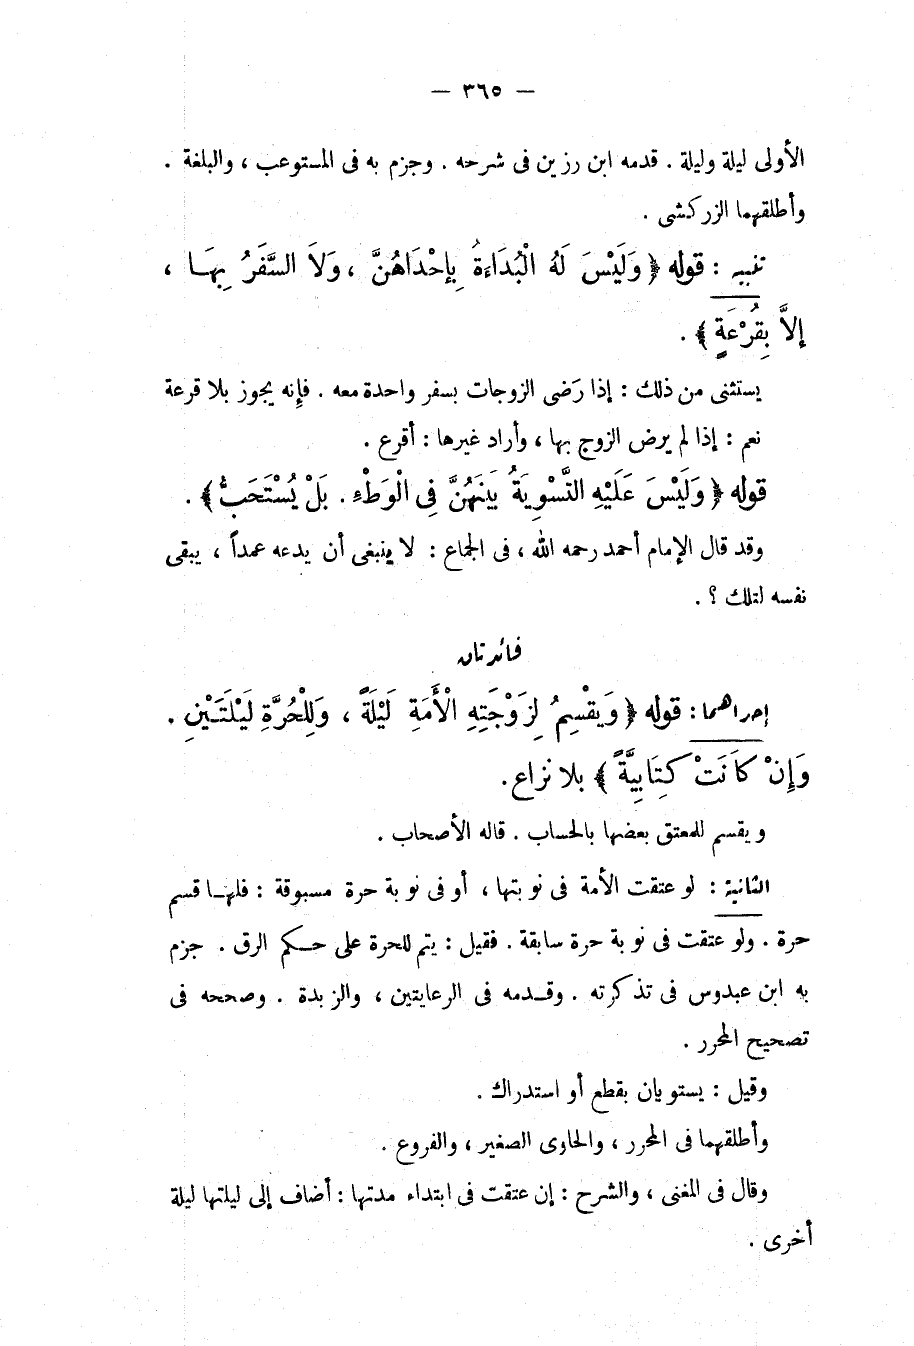 — ٣٦٥ —
الأولى ليلة وليلة . قدمه ابن رزين فى شرحه . وجزم به فى المستوعب ، والبلغة .
وأطلقهما الزركشى .
تنبيه : قوله ﴿ وَلَيْسَ لَهُ الْبُدَاءَةُ بِإِحْدَاهُنَّ ، وَلاَ السَّفَرُ بِهَا ،
إِلاَّ بِقُرْعَةٍ ﴾ .
يستثنى من ذلك : إذا رَضى الزوجات بسفر واحدة معه . فإنه يجوز بلا قرعة
نعم : إذا لم يرض الزوج بها ، وأراد غيرها : أقرع .
قوله ﴿ وَلَيْسَ عَلَيْهِ التَّسْوِيَةُ بَيْنَهُنَّ فِى الْوَطْءِ . بَلْ يُسْتَحَبُّ ﴾ .
وقد قال الإمام أحمد رحمه الله ، فى الجماع : لا ينبغى أن يدعه عمداً ، يبقى
نفسه لتلك ؟ .
فائدتان
إحداهما : قوله ﴿ وَيَقْسِمُ لِزَوْجَتِهِ الْأَمَةِ لَيْلَةً ، وَلِلْحُرَّةِ لَيْلَتَيْنِ .
وَإِنْ كَانَتْ كِتَابِيَّةً ﴾ بلا نزاع .
ويقسم للمعتق بعضها بالحساب . قاله الأصحاب .
الثانية : لو عتقت الأمة فى نوبتها ، أو فى نوبة حرة مسبوقة : فلها قسم
حرة . ولو عتقت فى نوبة حرة سابقة . فقيل : يتم للحرة على حكم الرق . جزم
به ابن عبدوس فى تذكرته . وقدمه فى الرعايتين ، والزبدة . وصححه فى
تصحيح المحرر .
وقيل : يستويان بقطع أو استدراك .
وأطلقهما فى المحرر ، والحاوى الصغير ، والفروع .
وقال فى المغنى ، والشرح : إن عتقت فى ابتداء مدتها : أضاف إلى ليلتها ليلة
أخرى .